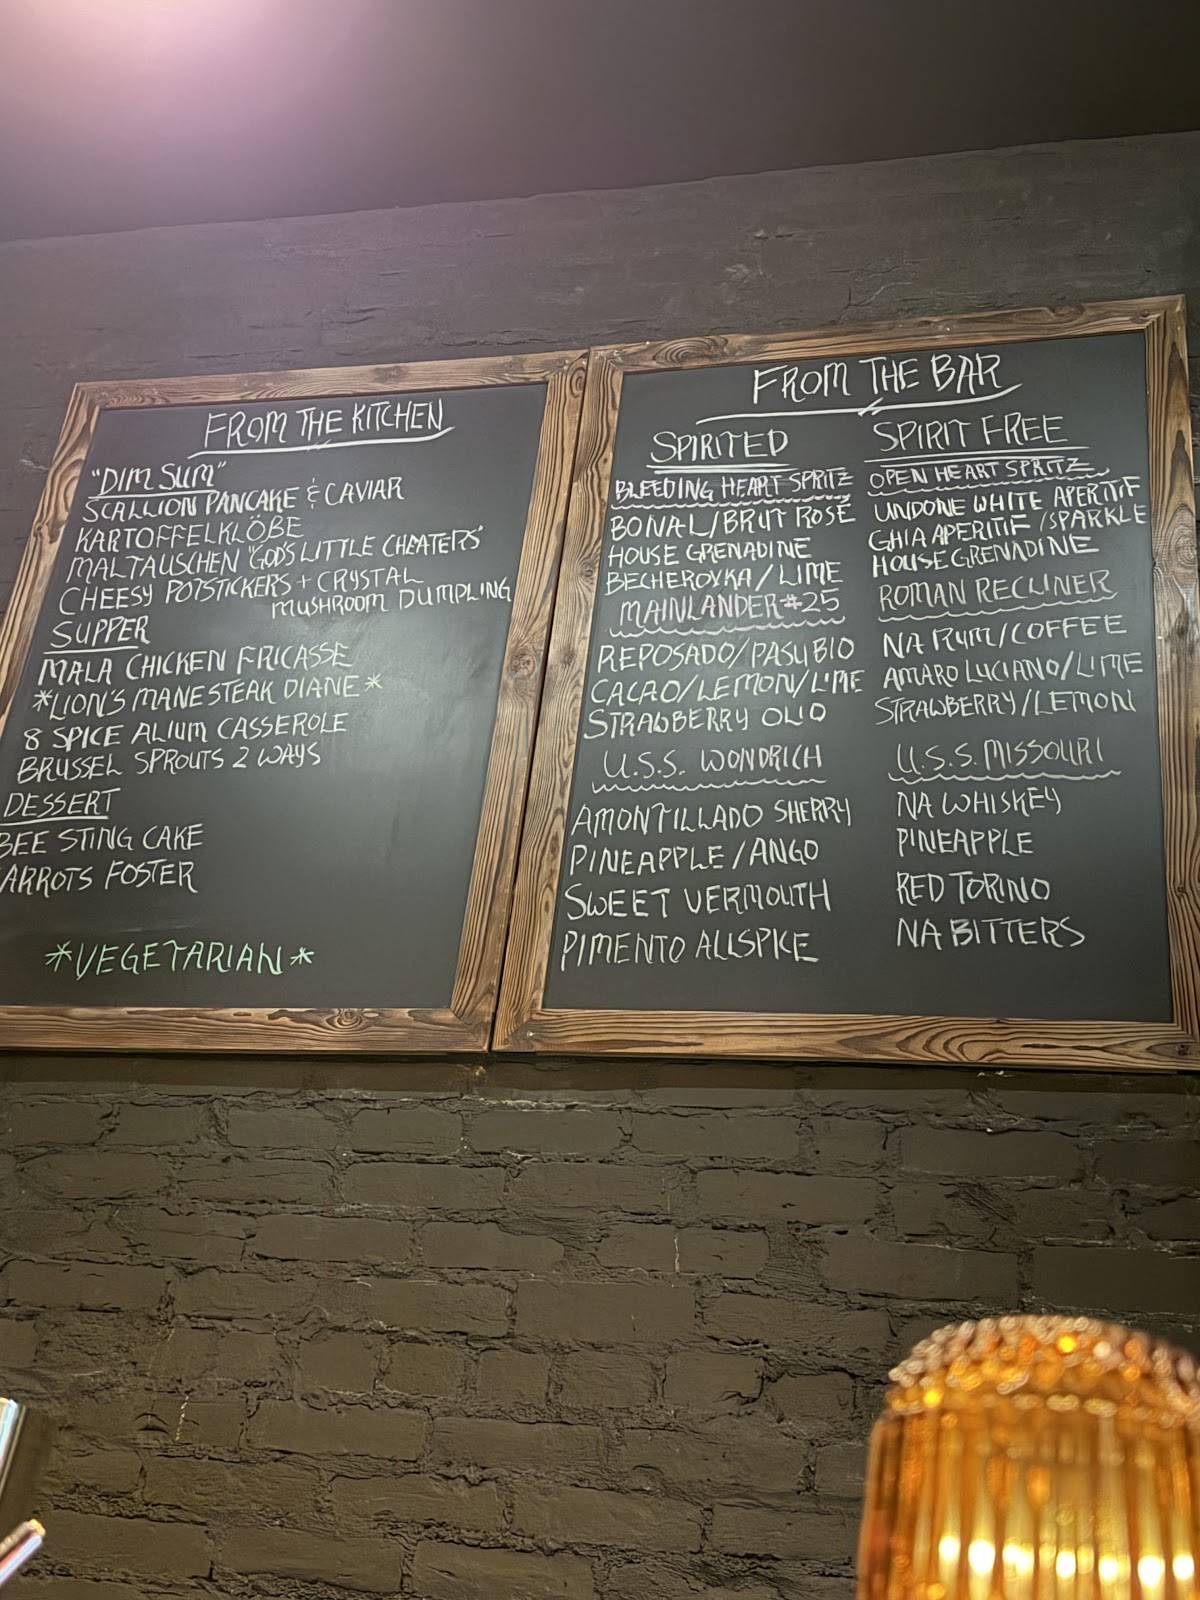 FROM THE KITCHEN
"DIM SUM"
SCALLION PANCAKE & CAVIAR
KARTOFFELKLÖBE
MALTAUSCHEN "GOD'S LITTLE CHEATERS"
CHEESY POTSTICKERS + CRYSTAL
MUSHROOM DUMPLING
SUPPER
MALA CHICKEN FRICASSE
*LION'S MANE STEAK DIANE*
8 SPICE ALIUM CASSEROLE
BRUSSEL SPROUTS 2 WAYS
DESSERT
BEE STING CAKE
ARROTS FOSTER
*VEGETARIAN*
FROM THE BAR
SPIRITED
BLEEDING HEART SPRITZ
BONAL/BRUT ROSÉ
HOUSE GRENADINE
BECHEROVKA/LIME
MAINLANDER #25
REPOSADO/PASUBIO
CACAO/LEMON/LIME
STRAWBERRY OLIO
U.S.S. WONDRICH
AMONTILLADO SHERRY
PINEAPPLE/ANGO
SWEET VERMOUTH
PIMENTO ALLSPICE
SPIRIT FREE
OPEN HEART SPRITZ
UNDONE WHITE APERITIF
GHIA APERITIF/SPARKLE
HOUSE GRENADINE
ROMAN RECLINER
NA RUM/COFFEE
AMARO LUCIANO/LIME
STRAWBERRY/LEMON
U.S.S. MISSOURI
NA WHISKEY
PINEAPPLE
RED TORINO
NA BITTERS